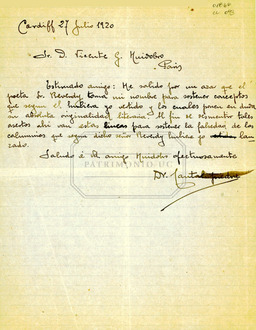 Cardiff 27 Julio 1920
Sr. D. Vicente G. Huidobro
Paris
Estimado amigo: He sabido por un asa que el
poeta Sr. Reverdy toma mi nombre para sostener conceptos
que segun el hubiera yo vertido y los cuales ponen en duda
su absoluta originalidad literaria. A fin de desmentir tales
asertos ahi van estas lineas para sostener la falsedad de las
calumnias que segun dicho señor Reverdy hubiera yo lan
zado.
Saluda á Vd amigo Huidobro afectuosamente
PATRIMONIO UC
Dr.